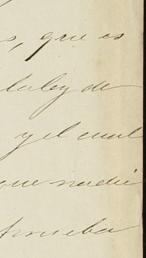 s, que es
la ley de
y el cual
que nadie
prueba